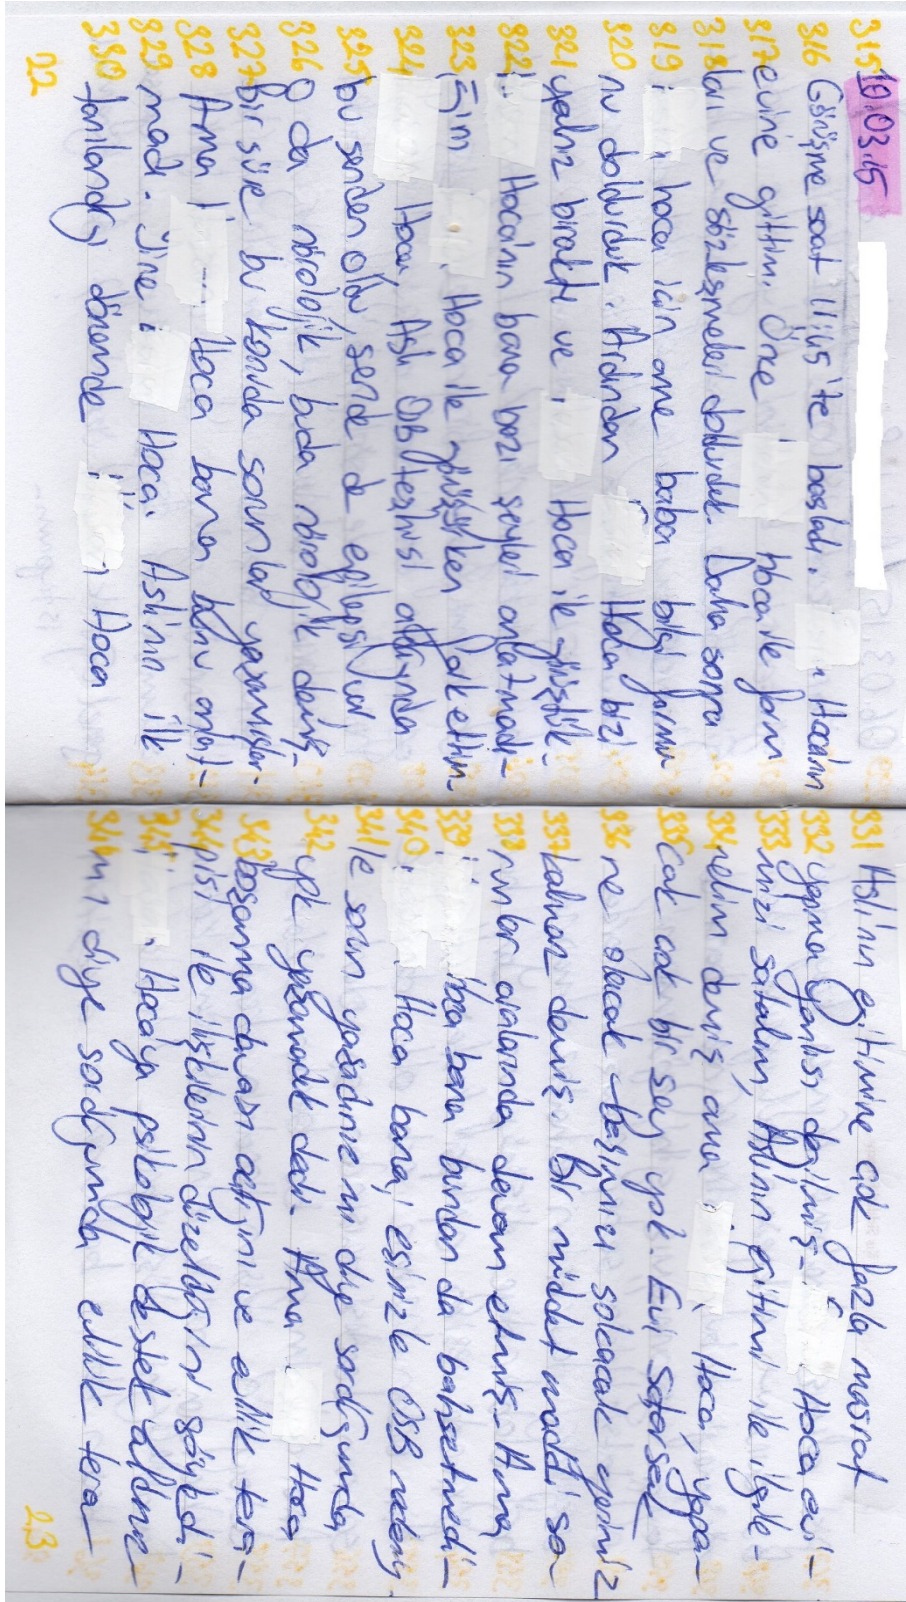 315 10.03.15
316 Görüşme saat 11:45'te başladı. Hocanın
317 evine gittim. Önce Hoca ile form
318 ları ve sözleşmeleri doldurduk. Daha sonra
319 hoca için anne baba bilgi formu
320 nu doldurduk. Ardından Hoca bizi
321 yalnız bıraktı ve Hoca ile görüştük.
322 Hocanın bana bazı şeyleri anlatmadı-
323 ğını Hoca ile görüşürken fark ettim.
324 Hoca, Aslı OSB teşhisi aldığında
325 bu senden oldu, sende de epilepsi var,
326 O da nörolojik, bu da nörolojik demiş.
327 Bir süre bu konuda sorunlar yaşamışlar.
328 Ama Hoca bana bunu anlat-
329 madı. Yine Hoca. Aslının ilk
330 tanılandığı dönemde Hoca
22
331 Aslı'nın eğitimine çok fazla masraf
332 yapma yanlısı değilmiş. Hoca evi-
333 mizi satalım, Aslının eğitimi ile ilgile-
334 nelim demiş ama Hoca, yapa-
335 cak çok bir şey yok. Evi satarsak
336 ne olacak başımızı sokacak yerimiz
337 kalmaz demiş. Bir müddet maddi so-
338 runlar aralarında devam etmiş. Ama
339 Hoca bana bundan da bahsetmedi.
340 Hoca bana, eşinizle OSB nedeniy-
341 le sorun yaşadınız mı diye sorduğumda
342 yok yaşamadık dedi. Ama Hoca
343 boşanma davası açtığını ve evlilik tera-
344 pisi ile ilişkilerinin düzeldiğini söyledi.
345 Hocaya psikolojik destek aldınız
346 mı diye sorduğumda evlilik tera-
23